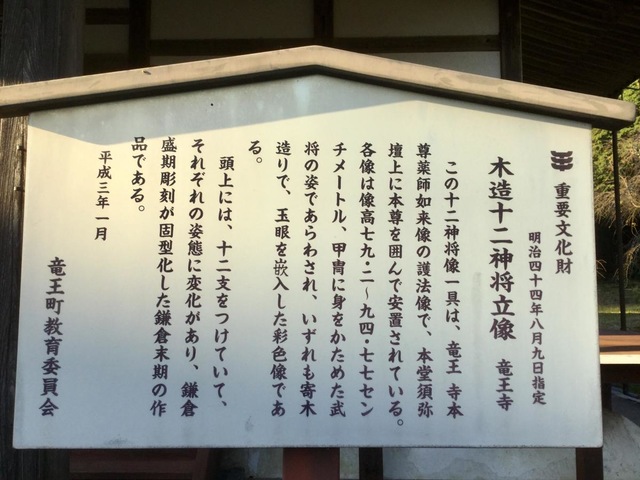 重要文化財
明治四十四年八月九日指定
木造十二神将立像 竜王寺
この十二神将像一具は、竜王 寺本
尊薬師如来像の護法像で、本堂須弥
壇上に本尊を囲んで安置されている。
各像は像高七九・二～九四・七七セン
チメートル、甲冑に身をかためた武
将の姿であらわされ、いずれも寄木
造りで、玉眼を嵌入した彩色像であ
る。
頭上には、十二支をつけていて、
それぞれの姿態に変化があり、鎌倉
盛期彫刻が固型化した鎌倉末期の作
品である。
平成三年一月
竜王町教育委員会